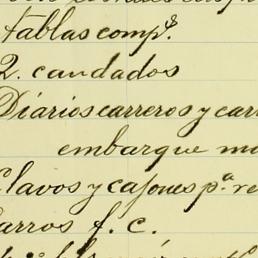 tablas comp.s
2. candados
Diarios carreros y carr
embarque ma
Clavos y cajones p.a re
Carros f. c.